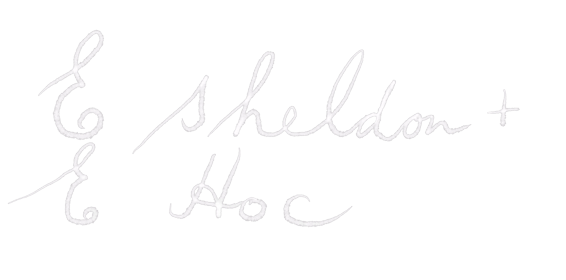 E Sheldon +
E Hoc